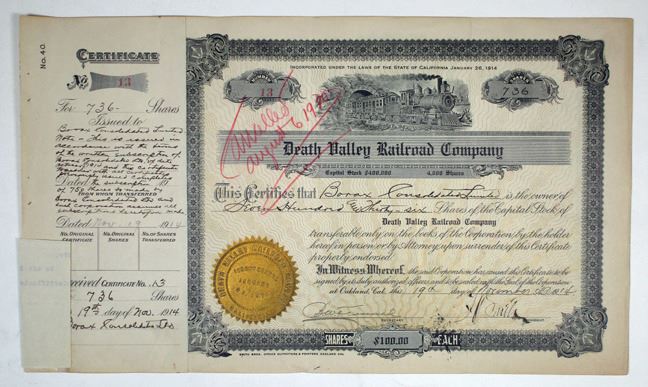 No. 40
CERTIFICATE
No. 13
For 736- Shares
Issued to
Borax Consolidated Limited
Note - this is issued in
accordance with the terms
of the written subscription of
Borax Consolidated Ltd
Dated
FROM WHOM TRANSFERRED
Dated Nov 19 1914
No. ORIGINAL CERTIFICATE
No. ORIGINAL SHARES
No. OF SHARES TRANSFERRED
Received Certificate No. 13
736 Shares
19th day of Nov. 1914
Borax Consolidated Ltd
INCORPORATED UNDER THE LAWS OF THE STATE OF CALIFORNIA JANUARY 26, 1914
NUMBER
13
SHARES
736
Cancelled
August 6
Death Valley Railroad Company
Capital Stock $400,000 4,000 Shares
This Certifies that Borax Consolidated Limited is the owner of
Seven Hundred & thirty-six Shares of the Capital Stock of
Death Valley Railroad Company
transferable only on the books of the Corporation by the holder
hereof in person or by Attorney upon surrender of this Certificate
properly endorsed.
In Witness Whereof, the said Corporation has caused this Certificate to be
signed by its duly authorized officers and to be sealed with the Seal of the Corporation
at Oakland, Cal. this 19th day of November A.D. 1914
DEATH VALLEY RAILROAD COMPANY
SECRETARY
SHARES $100.00 EACH
SMITH BROS. OFFICE OUTFITTERS & PRINTERS OAKLAND CAL.